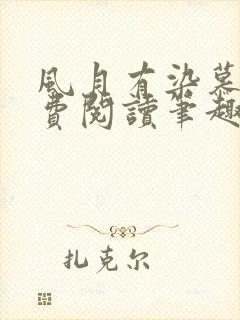 風月有染慕
費閱讀筆趣
扎克尔